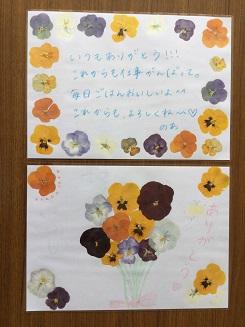 いつもありがとう!!!
これからも仕事がんばって。
毎日ごはんおいしいよ^^
これからも、よろしくね^^♡
のあ
ありがとう♡